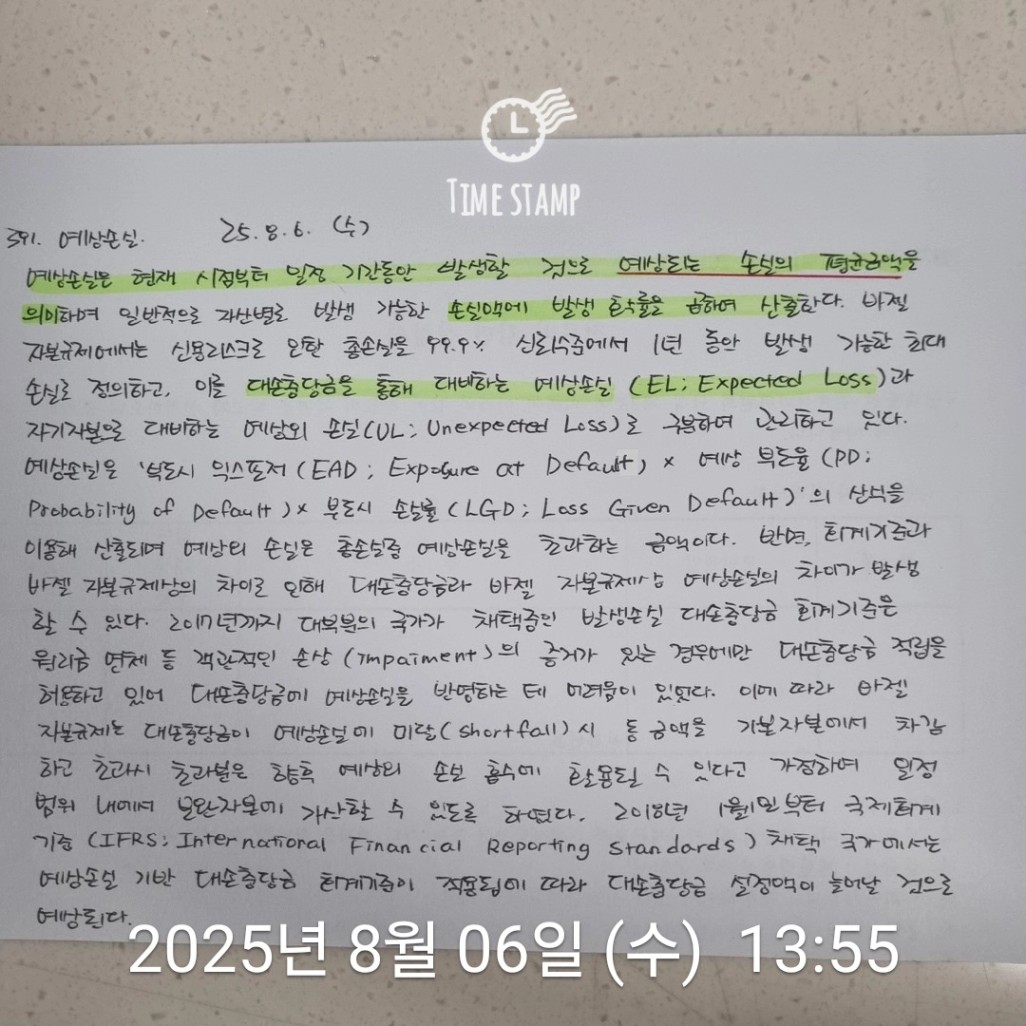 TIME STAMP
391. 예상손실. 25. 8. 6. (수)
예상손실은 현재 시점부터 일정 기간동안 발생할 것으로 예상되는 손실의 평균금액을
의미하며 일반적으로 자산별로 발생 가능한 손실액에 발생 확률을 곱하여 산출한다. 바젤
자본규제에서는 신용리스크로 인한 총손실을 99.9% 신뢰수준에서 1년 동안 발생 가능한 최대
손실로 정의하고, 이를 대손충당금을 통해 대비하는 예상손실 (EL; Expected Loss)과
자기자본으로 대비하는 예상외 손실(UL; Unexpected Loss)로 구분하여 관리하고 있다.
예상손실은 '부도시 익스포저 (EAD; Exposure at Default) × 예상 부도율 (PD;
Probability of Default) × 부도시 손실률 (LGD; Loss Given Default)'의 산식을
이용해 산출되며 예상외 손실은 총손실중 예상손실을 초과하는 금액이다. 반면, 회계기준과
바젤 자본규제상의 차이로 인해 대손충당금과 바젤 자본규제상 예상손실의 차이가 발생
할 수 있다. 2017년까지 대부분의 국가가 채택중인 발생손실 대손충당금 회계기준은
원리금 연체 등 객관적인 손상 (impaiment)의 증거가 있는 경우에만 대손충당금 적립을
허용하고 있어 대손충당금에 예상손실을 반영하는 데 어려움이 있었다. 이에 따라 바젤
자본규제는 대손충당금이 예상손실에 미달(shortfall)시 동 금액을 기본자본에서 차감
하고 초과시 초과분은 향후 예상외 손실 흡수에 활용될 수 있다고 가정하여 일정
범위 내에서 보완자본에 가산할 수 있도록 하였다. 2018년 1월1일부터 국제회계
기준 (IFRS; International Financial Reporting Standards) 채택 국가에서는
예상손실 기반 대손충당금 회계기준이 적용됨에 따라 대손충당금 설정액이 늘어날 것으로
예상된다.
2025년 8월 06일 (수) 13:55